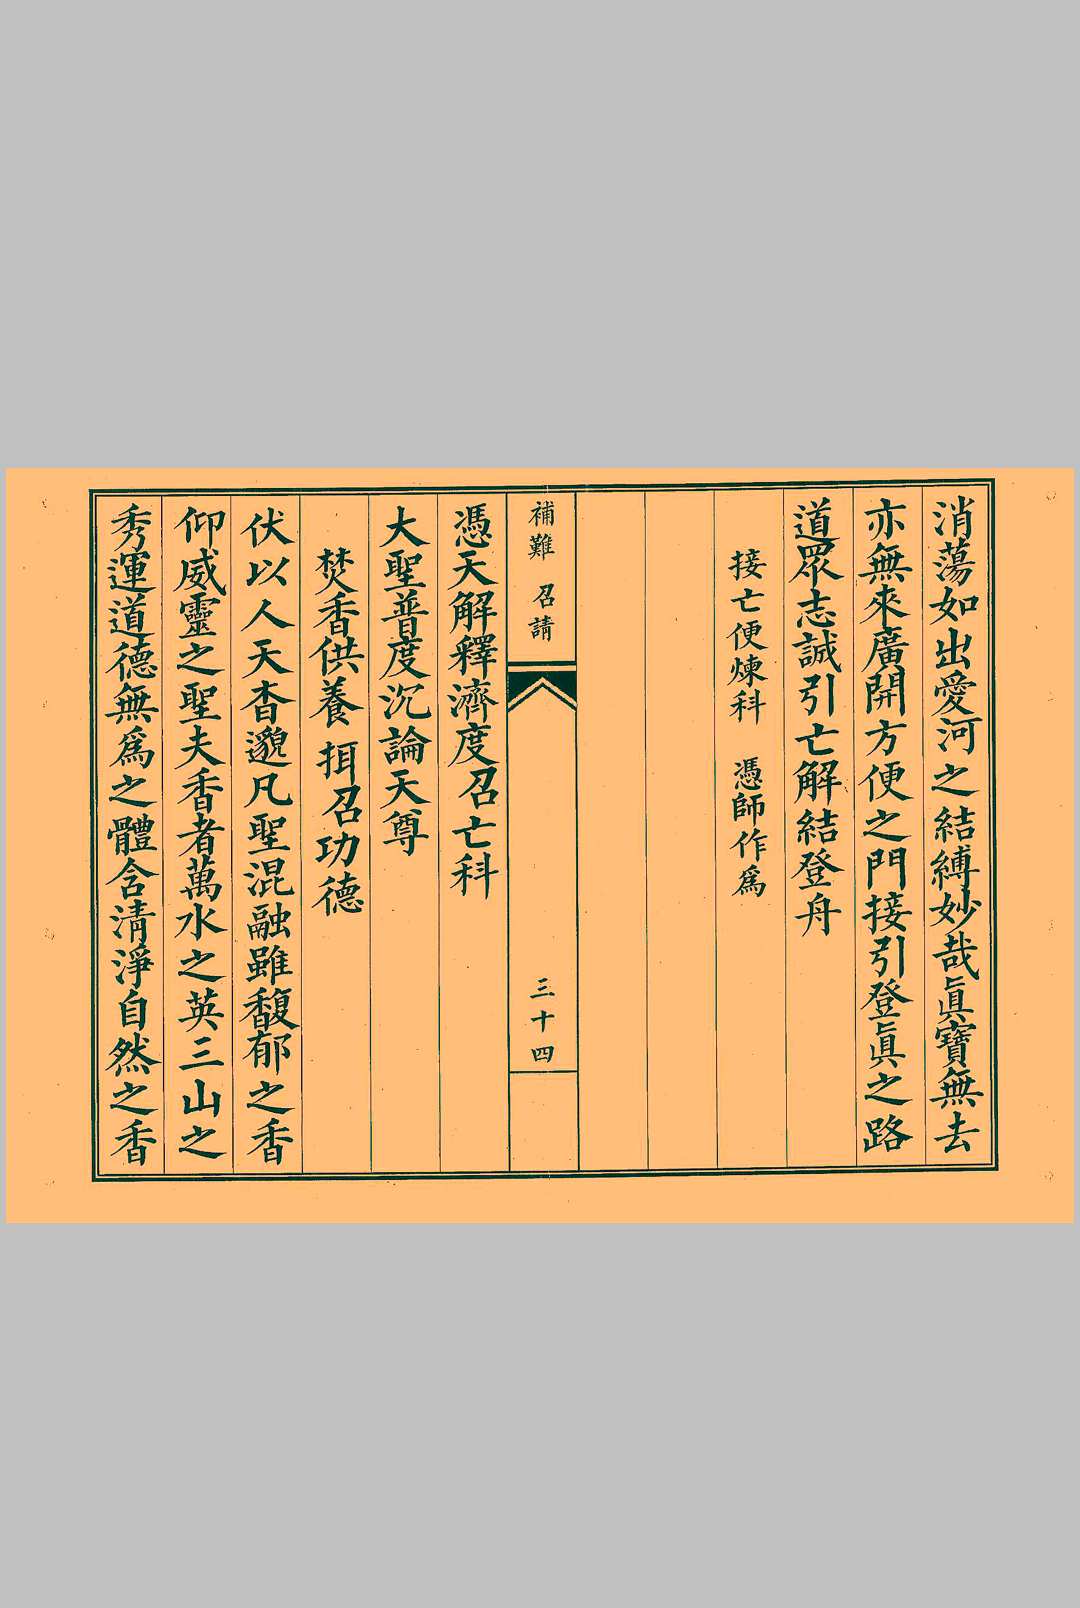 消蕩如出愛河之結縛妙哉眞寶無去
亦無來廣開方便之門接引登眞之路
道眾志誠引亡解結登舟
接亡便煉科　憑師作爲
補難　召請
三十四
憑天解釋濟度召亡科
大聖普度沉論天尊
焚香供養　揖召功德
伏以人天杳邈凡聖混融雖馥郁之香
仰威靈之聖夫香者萬水之英三山之
秀運道德無爲之體含清淨自然之香